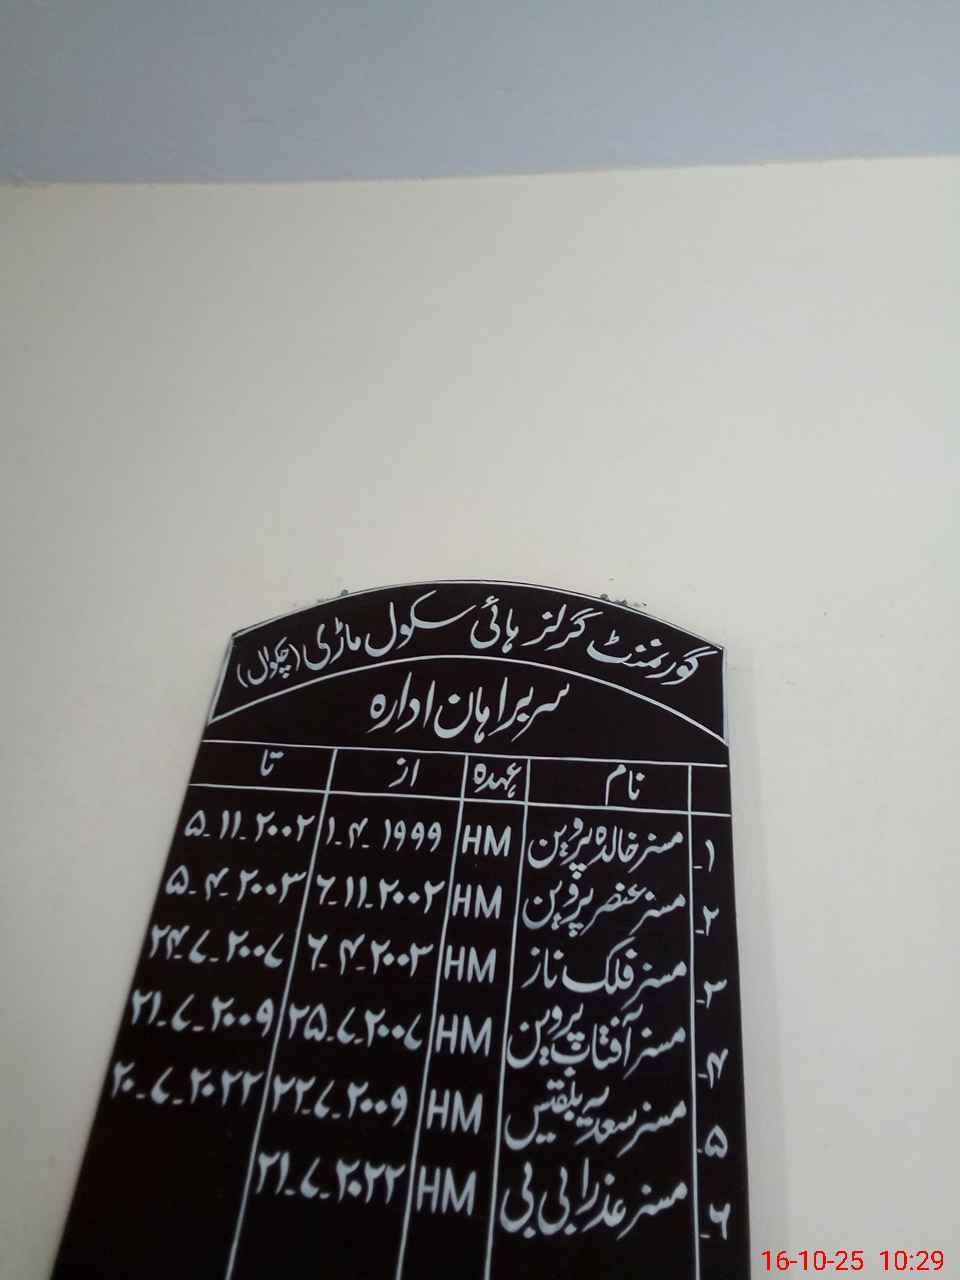 گورنمنٹ گرلز ہائی سکول ماڑی (چکوال)
سربراہان ادارہ
نام عہدہ از تا
۱۔ مسز خالدہ پروین HM ۱.۴.۱۹۹۹ ۵.۱۱.۲۰۰۲
۲۔ مسز عنصر پروین HM ۶.۱۱.۲۰۰۲ ۵.۴.۲۰۰۳
۳۔ مسز فلک ناز HM ۶.۴.۲۰۰۳ ۲۴.۷.۲۰۰۷
۴۔ مسز آفتاب پروین HM ۲۵.۷.۲۰۰۷ ۲۱.۷.۲۰۰۹
۵۔ مسز سعدیہ بلقیس HM ۲۲.۷.۲۰۰۹ ۲۰.۷.۲۰۲۲
۶۔ مسز عذرا بی بی HM ۲۱.۷.۲۰۲۲
16-10-25 10:29